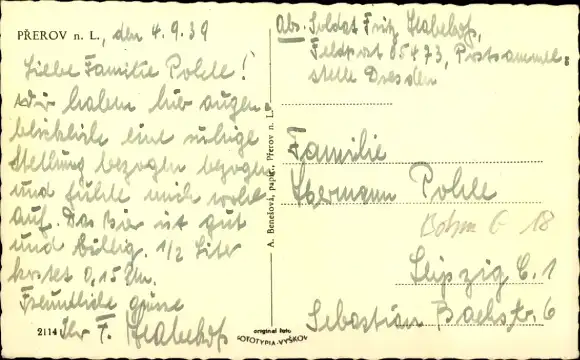 PŘEROV n. L., den 4.9.39
Liebe Familie Pohle!
Wir haben hier augen-
blicklich eine ruhige
Stellung bezogen bezogen
und fühle mich wohl
auf. Das Bier ist gut
und billig. 1/2 Liter
kostet 0,15 Rm.
Freundliche Grüsse
Ihr F.
2114
A. Benešová, papír., Přerov n. L.
Abs. Soldat Fritz
Feldpost 05473, Postsammel-
stelle Dresden
Familie
Hermann Pohle
Leipzig C. 1
Sebastian Bachstr. 6
original foto
FOTOTYPIA-VYŠKOV